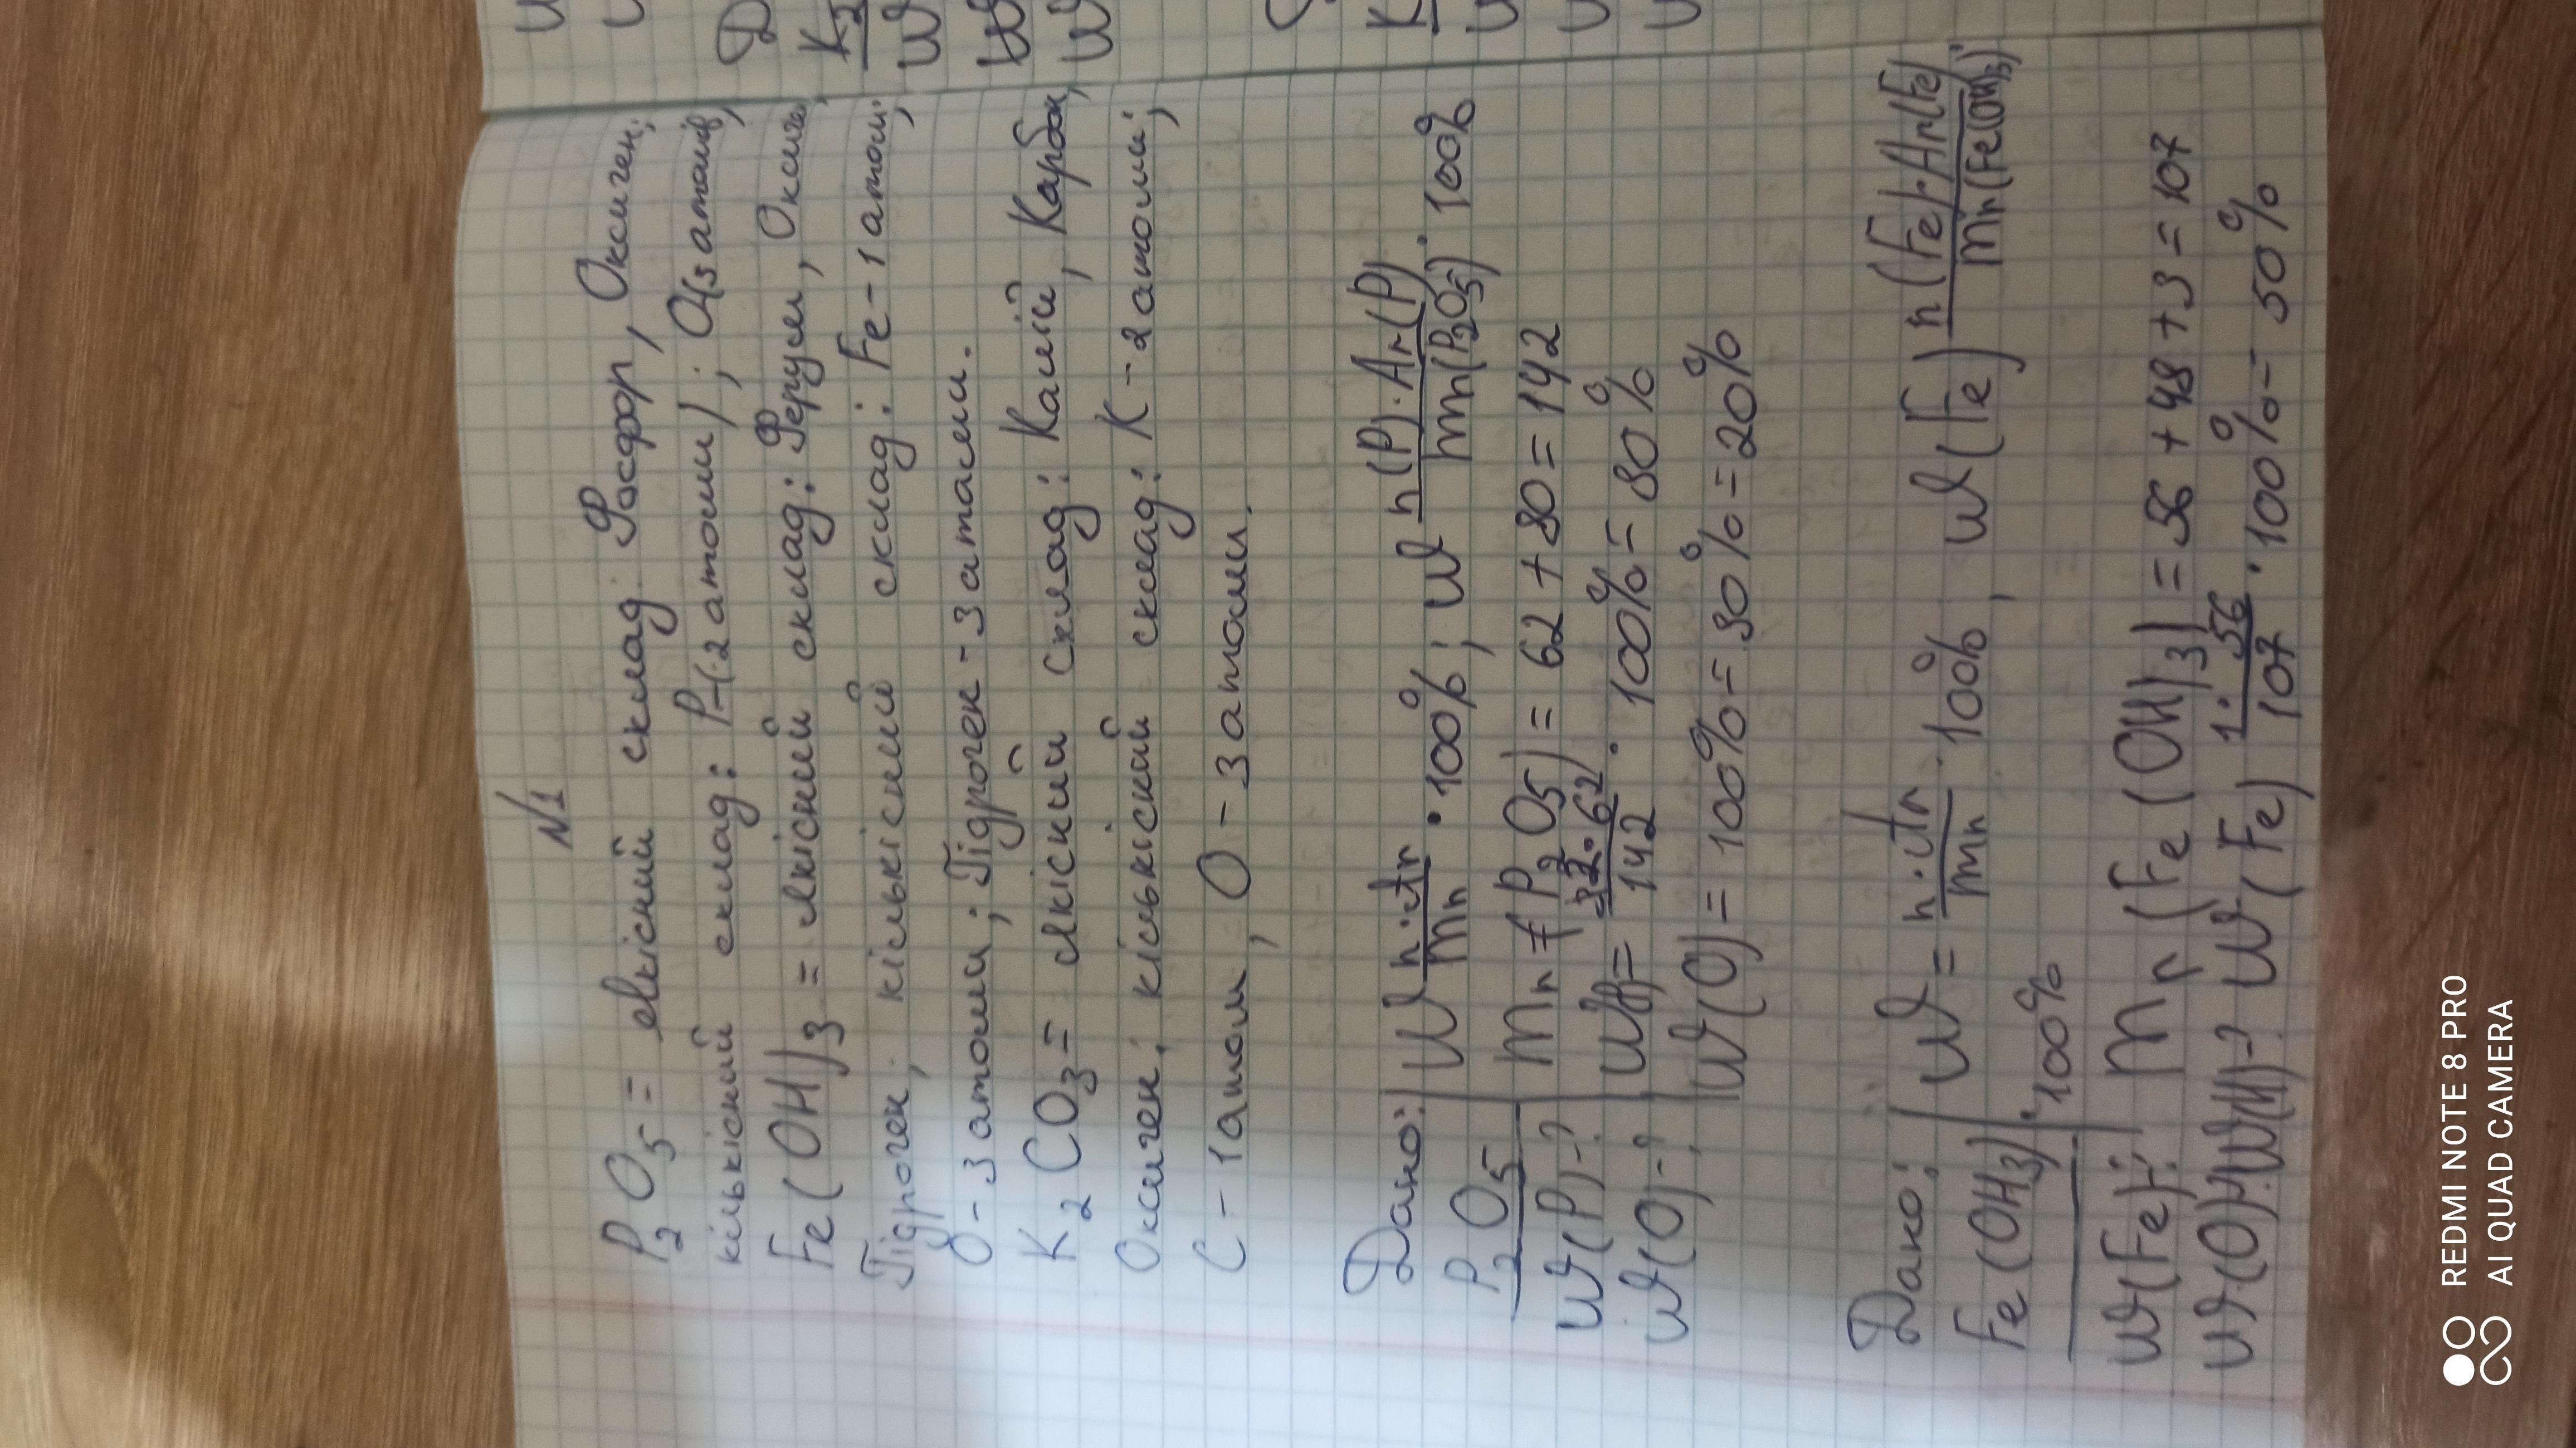 N1
P2O5 = якісний склад: Фосфор, Оксиген;
кількісний склад: P-(2 атоми); O(5 атомів)
Fe(OH)3 = якісний склад: Ферум, Оксиген,
Гідроген, кількісний склад: Fe-1 атом;
O-3 атоми; Гідроген-3 атоми.
K2CO3 = якісний склад: Калій, Карбон,
Оксиген; кількіский склад: K-2 атоми;
C-1 атом, O-3 атоми.
Дано:
P2O5
W(P)-?
W(O)-?
W n·Ar/Mr · 100%; W n(P)·Ar(P)/Mr(P2O5) · 100%
Mr (P2O5) = 62 + 80 = 142
100% = 80%
W(O) = 100% = 30% = 20%
Дано:
Fe(OH3)
W(Fe)-?
W(O)-? W(H)-?
W = n·Ar/Mr · 100%, W(Fe) n(Fe)·Ar(Fe)/Mr(Fe(OH)3)
· 100%
Mr (Fe(OH)3) = 56 + 48 + 3 = 107
W(Fe) 1·56/107 · 100% = 50%
REDMI NOTE 8 PRO
AI QUAD CAMERA